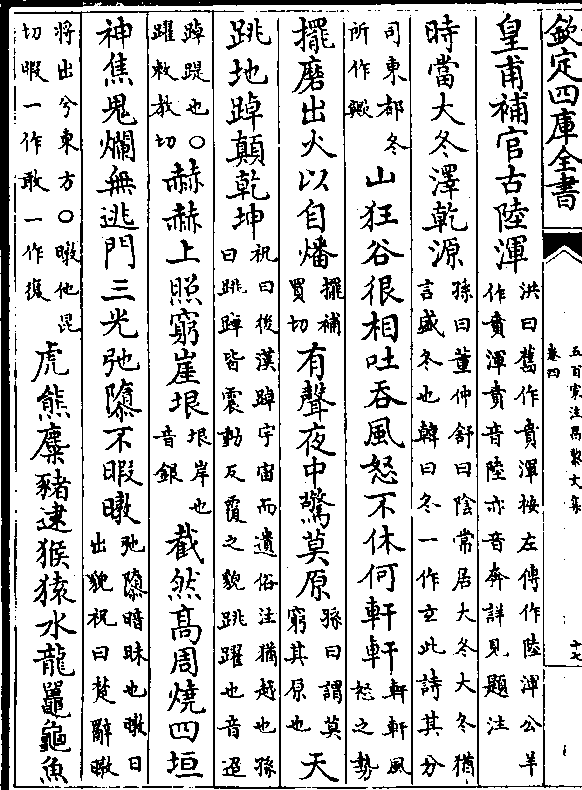 欽定四庫全書
五百家注昌黎文集
卷四
十七
皇甫補官古陸渾洪曰舊作賁渾按左傳作陸渾公羊作賁渾賁音陸亦音奔詳見題注
時當大冬澤乾源孫曰董仲舒曰陰常居大冬大冬猶言盛冬也韓曰冬一作玄此詩其分
司東都冬所作歟山狂谷很相吐吞風怒不休何軒軒軒軒風怒之勢
擺磨出火以自燔擺補買切有聲夜中驚莫原孫曰謂莫窮其原也天
跳地踔顛乾坤祝曰後漢踔宇宙而遺俗注猶越也孫曰跳踔皆震動反覆之貌跳躍也音迢
踔踶也○躍敕教切赫赫上照窮崖垠垠岸也音銀截然高周燒四垣
神焦鬼爛無逃門三光弛隳不暇暾弛隳暗昧也暾日出貌祝曰楚辭暾
將出兮東方○暾他昆切暇一作敢一作復虎熊麋豬逮猴猿水龍鼉龜魚